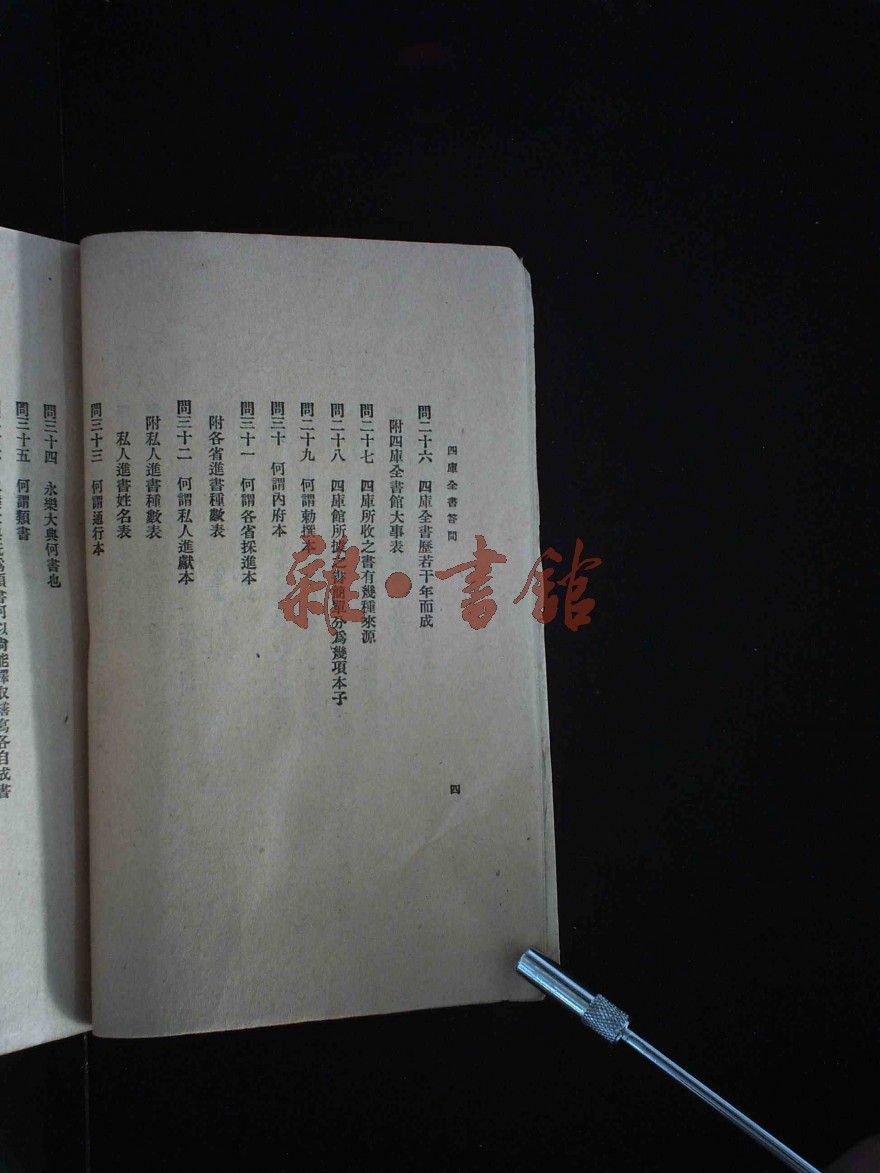 四庫全書答問
四
問二十六　四庫全書歷若干年而成
附四庫全書館大事表
問二十七　四庫所收之書有幾種來源
問二十八　四庫館所據之書簡單分爲幾項本子
問二十九　何謂勅撰本
問三十　何謂內府本
問三十一　何謂各省採進本
附各省進書種數表
問三十二　何謂私人進獻本
附私人進書種數表
私人進書姓名表
問三十三　何謂通行本
問三十四　永樂大典何書也
問三十五　何謂類書
類書何以尙能擇取繕寫各自成書
雜·書館